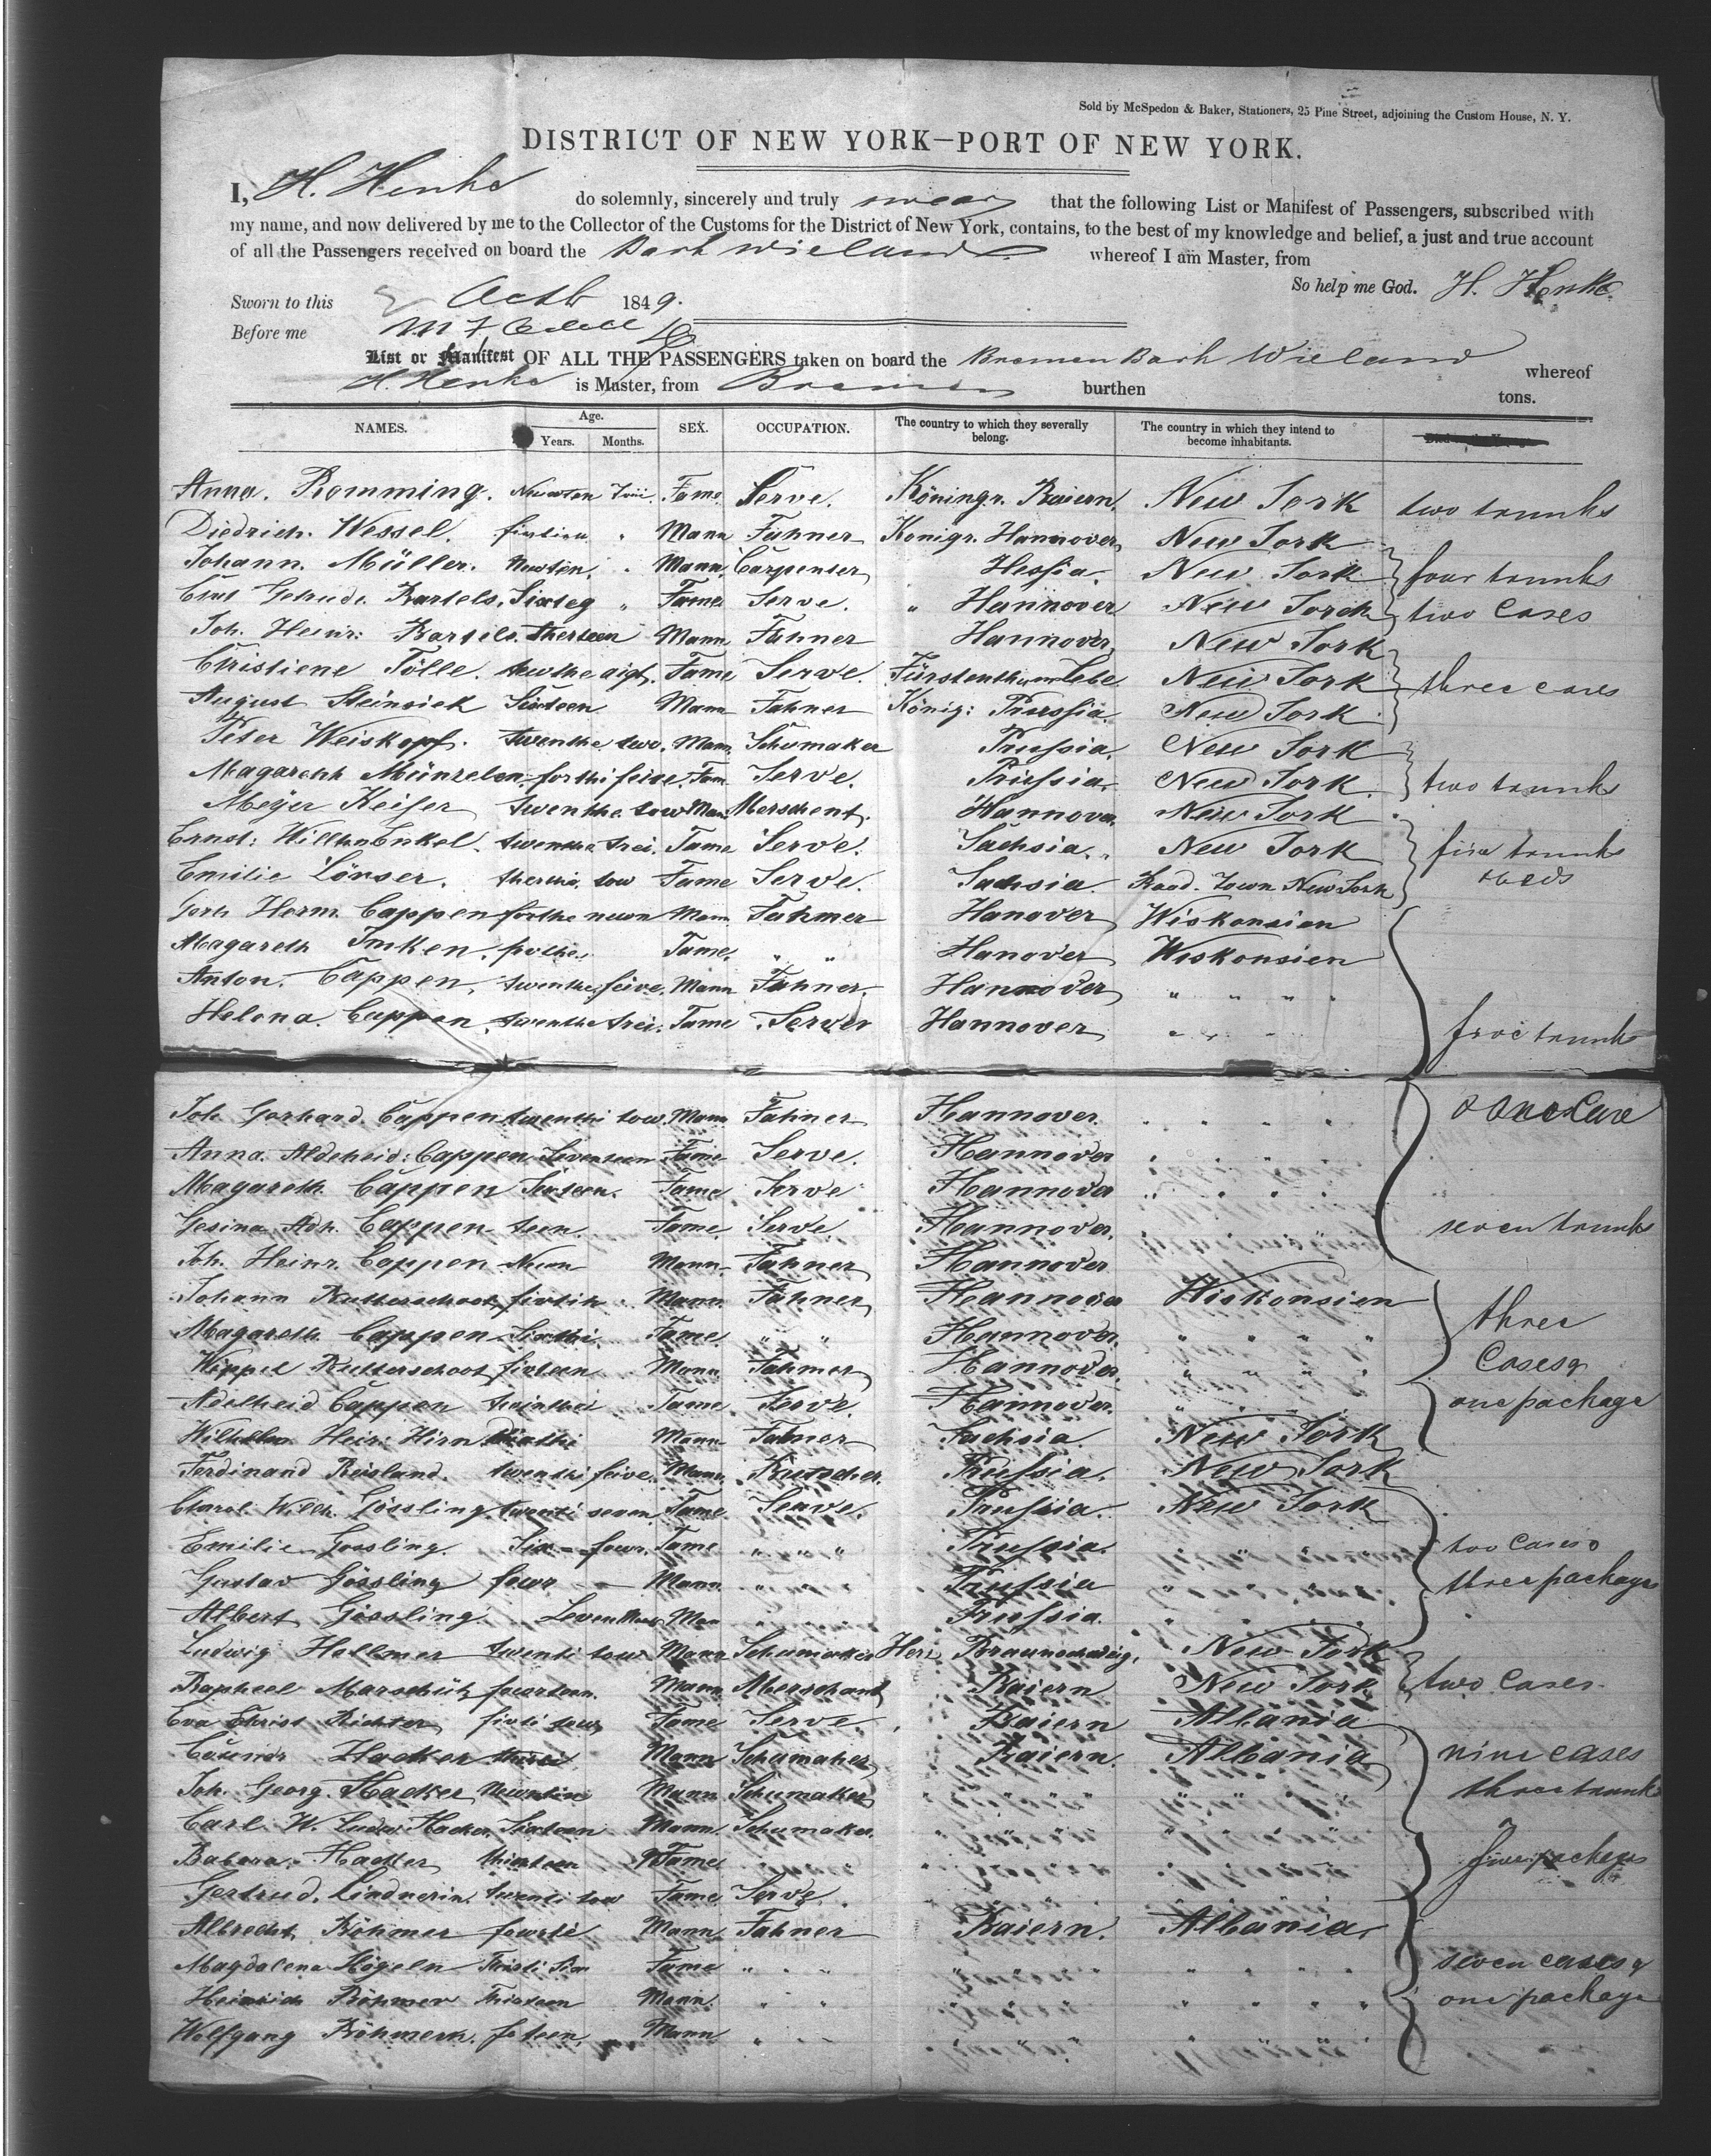 Sold by McSpedon & Baker, Stationers, 25 Pine Street, adjoining the Custom House, N. Y.
DISTRICT OF NEW YORK—PORT OF NEW YORK.
I, H. Henke do solemnly, sincerely and truly swear that the following List or Manifest of Passengers, subscribed with
my name, and now delivered by me to the Collector of the Customs for the District of New York, contains, to the best of my knowledge and belief, a just and true account
of all the Passengers received on board the Bark Wieland whereof I am Master, from
So help me God. H. Henke.
Sworn to this 2 Octb 1849.
Before me
List or Manifest OF ALL THE PASSENGERS taken on board the Bremen Bark Wieland whereof
H. Henke is Master, from Bremen burthen tons.
NAMES. Age. Years. Months. SEX. OCCUPATION. The country to which they severally belong. The country in which they intend to become inhabitants.
Anna. Romming. Fame. Serve. Köningr. Baiern. New York two trunks
Diedrich. Wessel. Mann Fahner Konigr. Hannover New York
Johann. Müller. Mann. Carpenser Hessia. New York four trunks
Getrude. Bartels. Sixteg " Fame Serve. " Hannover New Yorck two Cases
Joh. Heinr: Bartels. therteen Mann Fahner Hannover. New York
Christiene Tölle. twuthe aigt. Fame Serve. Fürstenthum New York three cases
August Steinsiek Sixteen Mann Fahner König: Prussia New York
Peter Weiskopf. twenthe two. Mann. Schumaker Prussia. New York
Magareth Münzelen. forthi feive. Fam Serve. Prussia New York. two trunks
Meijer Keiser twenthe tow Man Merschent. Hannover. New York
Ernst: Willh Enkel. twenthe trei. Fame Serve. Sachsia. New York five trunks
Emilie Lönser. therthi. tow Fame Serve. Sachsia. Town New York
Herm. Cappen forthe neun Mann Fahmer Hanover Wiskonsien
Magareth Imken. Fame. " " Hanover Wiskonsien
Anton. Cappen. twenthe feive. Mann Fahner. Hannover " " " "
Helena. Cappen. twenthe trei. Fame Server Hannover " " " trunks
Joh. Gerhard. Cappen twenthi tow. Mann Fahner Hannover. " " " "
Anna. Aldeheid: Cappen Seventeen Fame Serve. Hannover " " "
Magareth. Cappen Sixteen. Fame Serve Hannover " " " "
Gesina Adh. Cappen teen. Fame. Serve Hannover. seven trunks
Joh. Heinr. Cappen Neun Mann. Fahner Hannover
Johann Mann. Fahner Hannover Wiskonsien three
Magareth. Cappen Fame. " " Hannover. " " " "
Mann Fahmer Hannover. " " " " Cases &
Adelheid Cappen Fame Serve. Hannover. one package
Hirn Mann Fahner Sachsia. New York
Ferdinand Reisland. twenthi feive. Mann. Kutscher. Prussia. New York
Willh. Gössling. twenti seven Fame Serve. Prussia. New York
Emilie Gossling. Six - four. Fame " " " Prussia. two Cases
Gustav Gössling four — Mann " " " Prussia three packages
Albert Gössling. Man Prussia.
Ludwig Hellmer twenti tow Mann Schumaker Braunschweig. New York
Rapheel Marschütz fourteen. Mann Merschant Baiern New York two Cases.
Eva Christ Richter Fame Serve. Baiern Albania
Hacker Mann Schumaker Baiern. Albania nine cases
Joh. Georg. Hacker Mann Schumaker three trunks
Carl. W. Ludw. Hacker. Sixteen Mann. Schumaker.
Babara. Hacker thirteen Fame five packages
Gertrud. Lindnerin. twenti tow Fame Serve.
Albrecht. Böhmer fourti Mann. Fahner Baiern. Albania.
Magdalena Högeln Fame " " " seven cases &
Heinrich Böhmer Thirteen Mann. one package
Wolfgang Böhmern. Mann